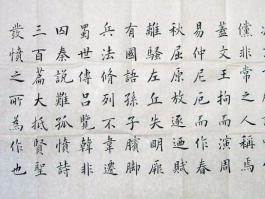 儻非常之人稱焉
蓋文王拘而演周
易仲尼厄而作春
秋屈原放逐迺賦
離騷左丘失明厥
有國語孫子臏腳
兵法脩列不韋遷
蜀世傳呂覽韓非
囚秦說難孤憤詩
三百篇大抵賢聖
發憤之所為作也